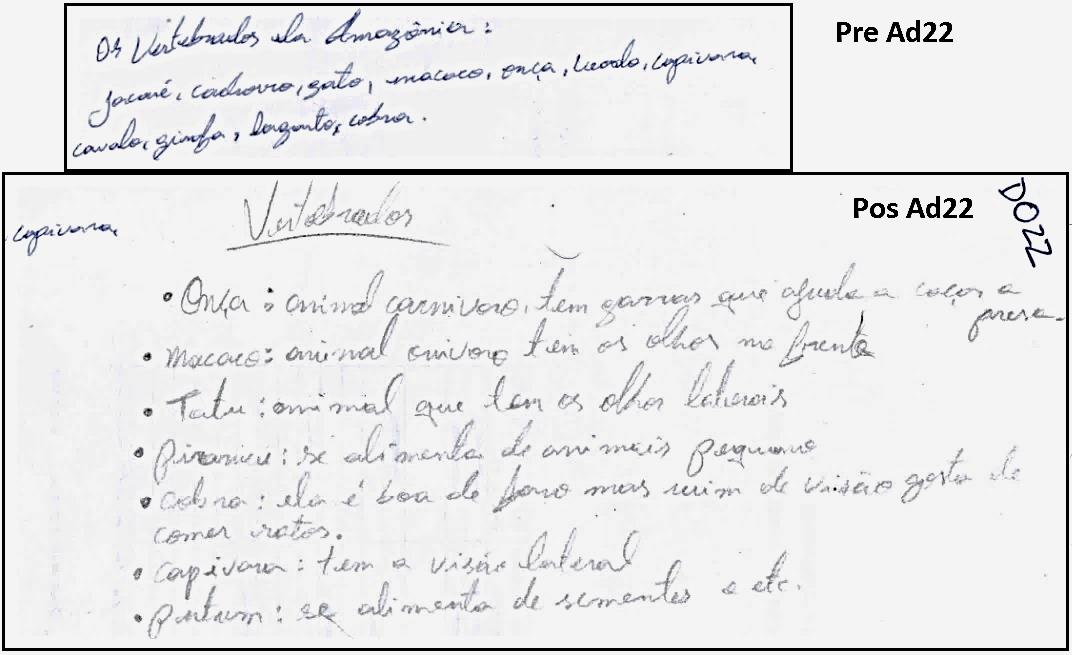 Os Vertebrados da Amazônia:
Pre Ad22
Jacaré, cachorro, gato, macaco, onça, veado, capivara,
cavalo, girafa, lagarto, cobra.
Pos Ad22
DO22
capivara,
Vertebrados
• Onça: animal carnivoro, tem garras que ajuda a caçar a
presa.
• macaco: animal onivoro tem os olhos na frente
• Tatu: animal que tem os olhos laterais
• pirarucu: se alimenta de animais pequeno
• cobra: ela é boa de faro mas ruim de visão gosta de
comer ratos.
• capivara: tem a visão lateral
• : se alimenta de sementes e etc.